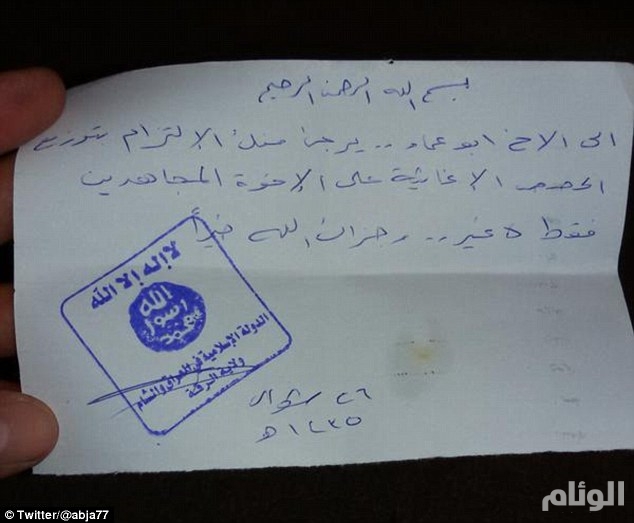 بسم الله الرحمن الرحيم
الى الاخ ابو عماد .. يرجى منك الإلتزام بتوزيع
الحصص الإغاثية على الإخوة المجاهدين
فقط لا غير .. وجزاك الله خيراً
لا إله إلا الله
الله
رسول
محمد
الدولة الإسلامية في العراق والشام
ولاية الرقة
٢٦ شوال
١٤٣٥ هـ
© Twitter/@abja77
الوئام